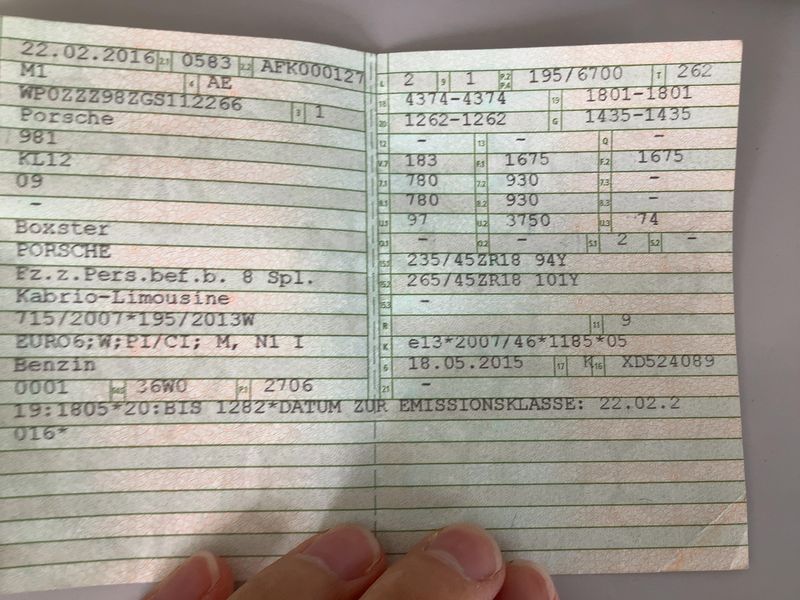 22.02.2016 2.1 0583 2.2 AFK000127
M1 4 AE
WP0ZZZ98ZGS112266 3 1
Porsche
981
KL12
09
-
Boxster
PORSCHE
Fz.z.Pers.bef.b. 8 Spl.
Kabrio-Limousine
715/2007*195/2013W
EURO6;W;PI/CI; M, N1 I
Benzin
0001 36W0 P.1 2706
L 2 9 1 P.2 P.4 195/6700 T 262
18 4374-4374 19 1801-1801
20 1262-1262 G 1435-1435
12 - 13 - Q -
V.7 183 F.1 1675 F.2 1675
7.1 780 7.2 930 7.3 -
8.1 780 8.2 930 8.3 -
U.1 97 U.2 3750 U.3 74
O.1 - O.2 - S.1 2 S.2 -
15.1 235/45ZR18 94Y
15.2 265/45ZR18 101Y
15.3 -
R 11 9
K e13*2007/46*1185*05
6 18.05.2015 17 K 16 XD524089
21 -
19:1805*20:BIS 1282*DATUM ZUR EMISSIONSKLASSE: 22.02.2
016*